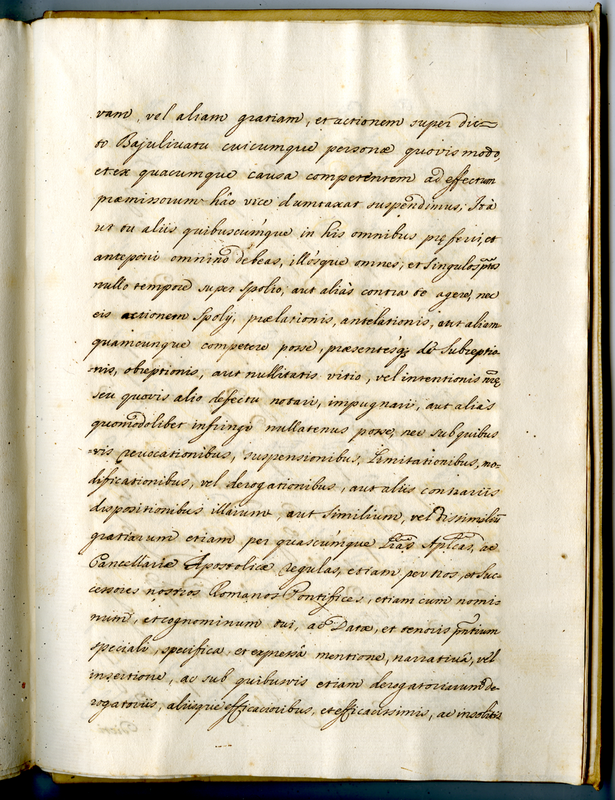 vam, vel aliam gratiam, et actionem super dic=
to Bajulivatu cuicumque personæ quovis modo,
et ex quacumque causa competentem ad effectum
præmissorum hâc vice dumtaxat suspendimus; Ità
ut tu aliis quibuscumque in his omnibus pręferri, et
anteponi omninò debeas, illosque omnes, et singulos pñtes
nullo tempore super spolio, aut aliàs contra te agere, nec
eis actionem spolij, prælationis, antelationis, aut aliam
quamcunque competere posse, præsentesq; de subreptio
nis, obreptionis, aut nullitatis vitio, vel intentionis ñræ,
seu quovis alio defectu notari, impugnari, aut aliàs
quomodolibet infringi nullatenus posse, nec sub quibus
vis revocationibus, suspensionibus, limitationibus, mo-
dificationibus, vel derogationibus, aut aliis contrariis
dispositionibus illarum, aut similium, vel dissimilium
gratiarum etiam per quascumque Lrãs Aplĩcas, ac
Cancellariæ Apostolicæ regulas, etiam per nos, et suc-
cessores nostros Romanos Pontifices, etiam cum nomi
num, et cognominum tui, ac Datæ, et tenoris pñtium
speciali, specifica, et expressâ mentione, narrativâ, vel
insertione, ac sub quibusvis etiam derogatoriarum de-
rogatoriis, aliisque efficacioribus, et efficacissimis, ac insolitis